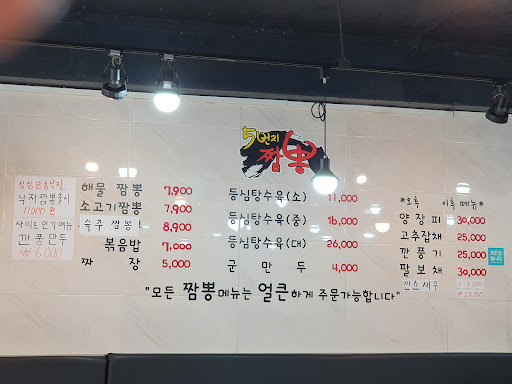 51번지
짬뽕
싱싱한 통낙지
낙지짬뽕출시
11000원
사이드 인기메뉴
깐풍만두
₩6000
해물 짬뽕 7,900
소고기짬뽕 7,900
숙주 짬뽕 8,900
볶음밥 7,000
짜 장 5,000
등심탕수육(소) 11,000
등심탕수육(중) 16,000
등심탕수육(대) 26,000
군 만 두 4,000
이후 메뉴
양 장 피 30,000
고추잡채 25,000
깐 풍 기 25,000
팔 보 채 30,000
깐쇼새우
"모든 짬뽕메뉴는 얼큰하게 주문가능합니다"